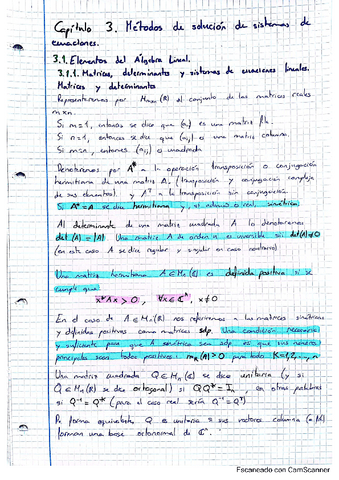 Capítulo 3. Métodos de solución de sistemas de
ecuaciones.
3.1. Elementos del Álgebra Lineal.
3.1.1. Matrices, determinantes y sistemas de ecuaciones lineales.
Matrices y determinantes
Representaremos por Mmxn (R) el conjunto de las matrices reales
mxn.
Si m=1, entonces se dice que (aij) es una matriz fila.
Si n=1, entonces se dice que (aij) es una matriz columna.
Si m=n, entonces (aij) es cuadrada
Denotaremos por A* a la operación transposición o conjugación
hermitiana de una matriz A, (transposición y conjugación compleja
de sus elementos) y Aᵀ a la transposición sin conjugación.
Si A*=A se dice hermitiana y, si además es real simétrica.
Al determinante de una matriz cuadrada A lo denotaremos
det(A)=|A| Una matriz A de orden n es inversible si det(A)≠0
(en este caso A se dice regular y singular en caso contrario)
Una matriz hermitiana A∈Mn(C) es definida positiva si se
cumple que
x*Ax>0, ∀x∈Cⁿ, x≠0
En el caso de A∈Mn(R) nos referiremos a las matrices simétricas
y definidas positivas como matrices sdp. Una condición necesaria
y suficiente para que A simétrica sea sdp es que sus menores
principales sean todos positivos: mk(A)>0 para todo K=1,2,...,n
Una matriz cuadrada Q∈Mn(C) se dice unitaria (y si
Q∈Mn(R) se dice octogonal) si QQ*=In, en otras palabras
si Q⁻¹=Q* (para el caso real sería Q⁻¹=Qᵀ)
De forma equivalente Q es unitaria si sus vectores columna
forman una base octonormal de Cⁿ.
Escaneado con CamScanner